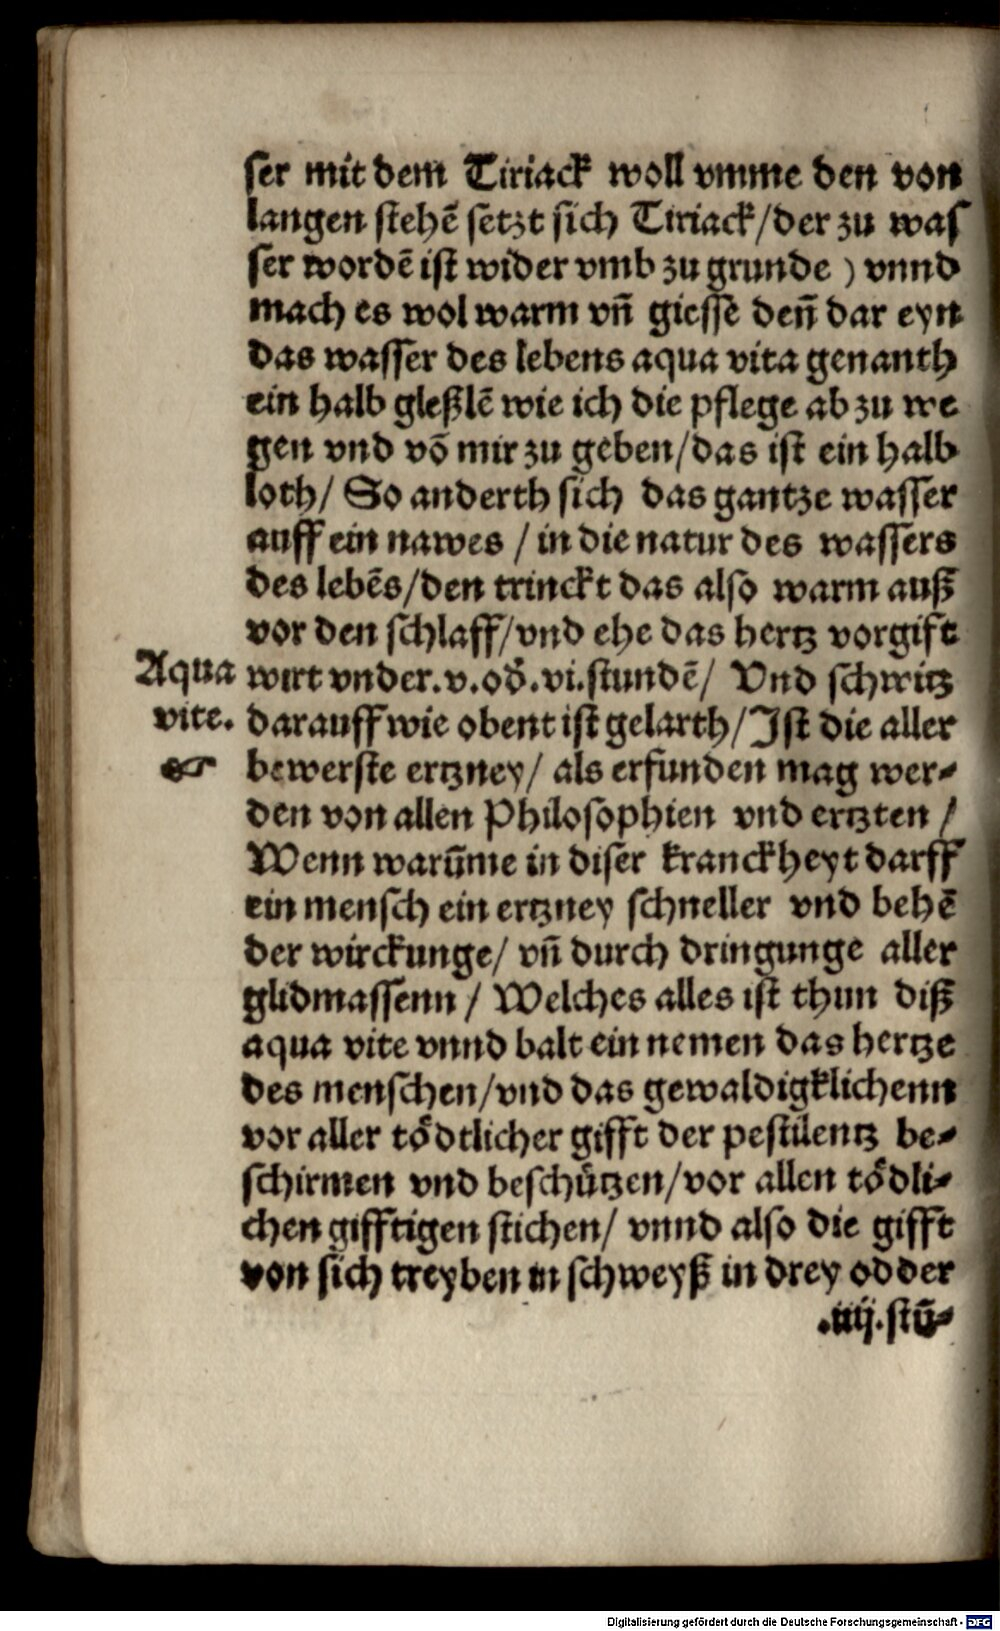 ser mit dem Tiriack woll vmme den von
langen stehē setzt sich Tiriack/der zu was
ser wordē ist wider vmb zu grunde ) vnnd
mach es wol warm vn̄ giesse den̄ dar eyn
das wasser des lebens aqua vita genanth
ein halb gleßlē wie ich die pflege ab zu we
gen vnd vō mir zu geben/das ist ein halb
loth/ So anderth sich das gantze wasser
auff ein nawes / in die natur des wassers
des lebēs/den trinckt das also warm auß
vor den schlaff/vnd ehe das hertz vorgift
Aqua vite. ☞
wirt vnder.v.od̄.vi.stundē/ Vnd schwitz
darauff wie obent ist gelarth/Ist die aller
bewerste ertzney/ als erfunden mag wer⸗
den von allen Philosophien vnd ertzten /
Wenn warūme in diser kranckheyt darff
ein mensch ein ertzney schneller vnd behē
der wirckunge/ vn̄ durch dringunge aller
glidmassenn / Welches alles ist thun diß
aqua vite vnnd balt ein nemen das hertze
des menschen/vnd das gewaldigklichenn
vor aller toͤdtlicher gifft der pestilentz be⸗
schirmen vnd beschuͤtzen/vor allen toͤdli⸗
chen gifftigen stichen/ vnnd also die gifft
von sich treyben in schweyß in drey odder
.iiij.stū⸗
Digitalisierung gefördert durch die Deutsche Forschungsgemeinschaft - DFG